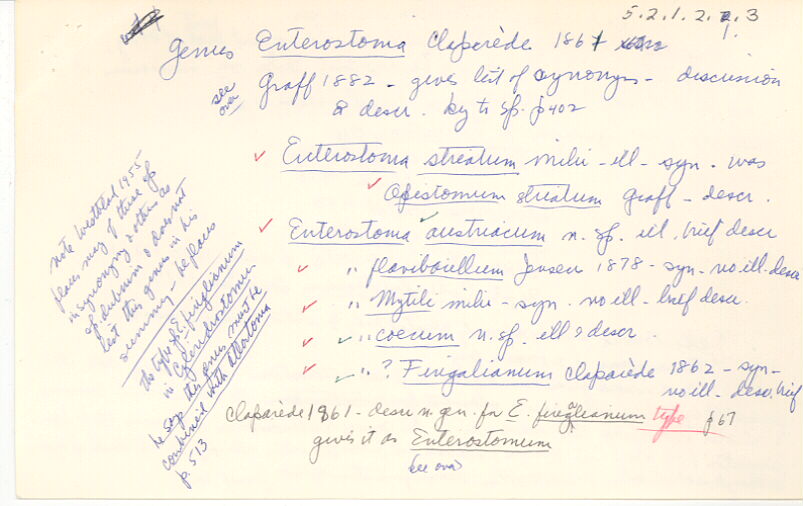 5.2.1.2.2.3
1.
Genus Enterostoma Claparède 1861
see over
Graff 1882 - gives list of synonyms - discussion
& descr. key to sp. p 402
Enterostoma striatum mihi - ill - syn. was
Opistomum striatum Graff - descr.
Enterostoma austriacum n. sp. ill, brief descr
" flavibacillum Jensen 1878 - syn - no ill. descr
" Mytili mihi - syn. no ill - brief descr.
" coecum n. sp. ill & descr.
" ? Fingalianum Claparède 1862 - syn -
no ill - descr. brief
Claparède 1861 - descr n. gen. for E. fingalianum type p 67
gives it as Enterostomum
see over
note Westblad 1955
places many of these sp
in synonymy & others as
sp. dubium & does not
list this genus in his
summary - he places
the type sp E. fingalianum
in Cylindrostoma
he says this genus must be
combined with Allostoma
p. 513